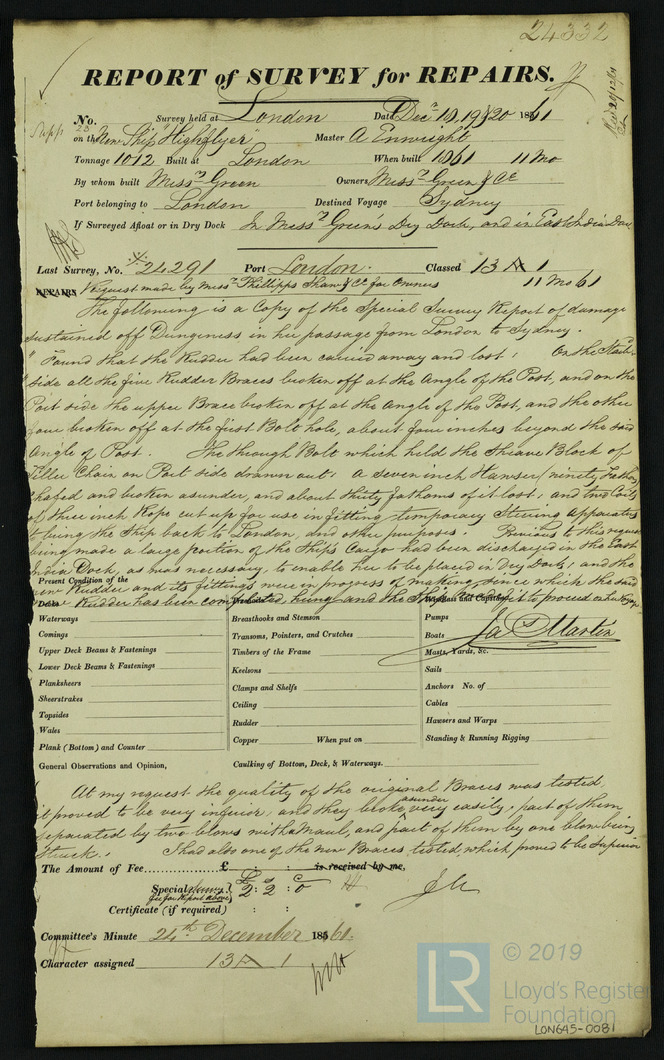 24332
REPORT of SURVEY for REPAIRS.
No. 23 Survey held at London Date Decr 10, 19 & 20 1861
on the New Ship "Highflyer" Master A Enright
Tonnage 1012 Built at London When built 1861 11 Mo
By whom built Messrs Green Owners Messrs Green & Co
Port belonging to London Destined Voyage Sydney
If Surveyed Afloat or in Dry Dock In Messrs Green's Dry Dock, and in East India Dock
Last Survey, No. 24291 Port London. Classed 13 A 1
REPAIRS Request made by Messrs Phillipps Shaw & Co for Owners 11 Mo 61
The following is a Copy of the Special Survey Report of damage
sustained off Dungeness in her passage from London to Sydney.
"Found that the Rudder had been carried away and lost; On the Starbd
side all the five Rudder Braces broken off at the Angle of the Post, and on the
Port side the upper Brace broken off at the Angle of the Post, and the other
four broken off at the first Bolt hole, about four inches beyond the said
Angle of Post. The through Bolt which held the Sheave Block of
Tiller Chain on Port side drawn out; A seven inch Hawser (ninety Fathoms)
chafed and broken asunder, and about thirty fathoms of it lost; and two Coils
of three inch Rope cut up for use in fitting temporary Steering apparatus
to bring the Ship back to London, and other purposes. Previous to this request
being made a large portion of the Ships Cargo had been discharged in the East
India Dock, as was necessary, to enable her to be placed in Dry Dock; and the
Present Condition of the
new Rudder and its fittings were in progress of making, since which the said
new Rudder has been completed, hung and the Ship made fit to proceed on her Voyage
Decks
Waterways
Comings
Upper Deck Beams & Fastenings
Lower Deck Beams & Fastenings
Planksheers
Sheerstrakes
Topsides
Wales
Plank (Bottom) and Counter
Breasthooks and Stemson
Transoms, Pointers, and Crutches
Timbers of the Frame
Keelsons
Clamps and Shelfs
Ceiling
Rudder
Copper When put on
Windlass and Capstan
Pumps
Boats Jas Martin
Masts, Yards, &c.
Sails
Anchors No. of
Cables
Hawsers and Warps
Standing & Running Rigging
General Observations and Opinion, Caulking of Bottom, Deck, & Waterways.
At my request the quality of the original Braces was tested,
it proved to be very inferior, and they broke asunder very easily, part of them
separated by two blows with a Maul, and part of them by one blow being
struck. I had also one of the new Braces tested, which proved to be Superior
The Amount of Fee £ : : is received by me,
Special Survey £ 2 : 2 : 0
fee for Report above
JM
Certificate (if required) : :
Committee's Minute 24th December 1861
Character assigned 13 A 1
LR
© 2019
Lloyd's Register
Foundation
LON645-0081